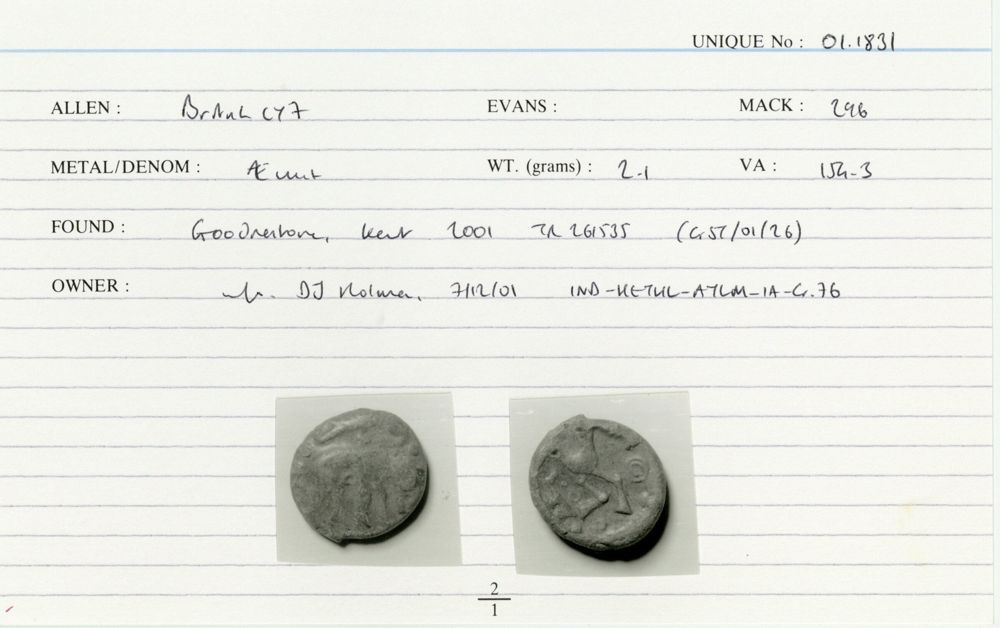 UNIQUE No : 01.1831
ALLEN : British CY7 EVANS : MACK : 296
METAL/DENOM : Æ unit WT. (grams) : 2.1 VA : 154-3
FOUND : Goodnestone, Kent 2001 TR 261535 (GST/01/26)
OWNER : DJ Holman, 7/12/01
2
1